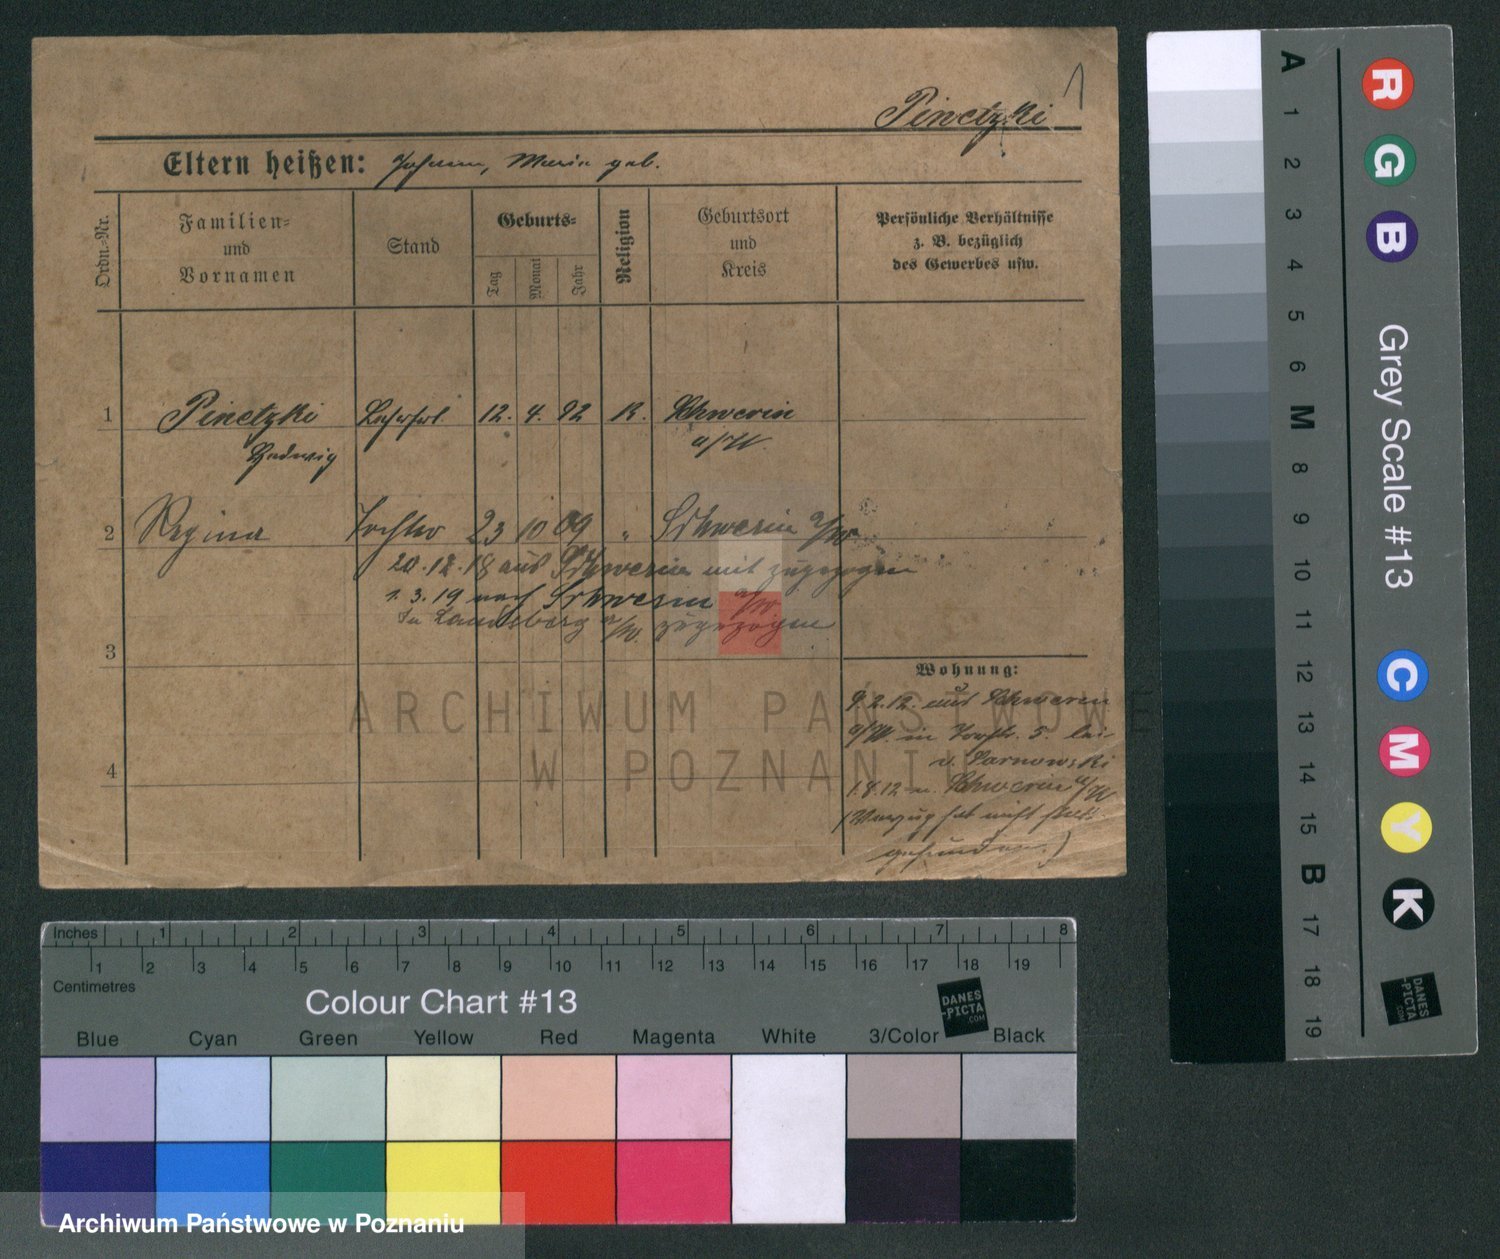 1
Pinetzki
Eltern heißen: Johann, Maria geb.
Ordn.-Nr.
Familien- und Vornamen
Stand
Geburts-
Tag
Monat
Jahr
Religion
Geburtsort und Kreis
Persönliche Verhältnisse
z. B. bezüglich
des Gewerbes usw.
1 Pinetzki 12. 4. 92 K. Schwerin
Hedwig a/W.
2 Regina Tochter 23 10 09 " Schwerin a/W
20.12.18 aus Schwerin mit zugezogen
1.3.19 nach Schwerin a/W
Landsberg a/W. zugezogen
3
4
Wohnung:
9.2.12. aus Schwerin
a/W. in 5. bei
v. Tarnowski
1.8.12 n. Schwerin a/W
(Umzug hat nicht statt
gefunden.)
ARCHIWUM PAŃSTWOWE
W POZNANIU
Inches 1 2 3 4 5 6 7 8
1 2 3 4 5 6 7 8 9 10 11 12 13 14 15 16 17 18 19
Centimetres
Colour Chart #13
DANES
-PICTA
.COM
Blue Cyan Green Yellow Red Magenta White 3/Color Black
Archiwum Państwowe w Poznaniu
A 1 2 3 4 5 6 M 8 9 10 11 12 13 14 15 B 17 18 19
R G B
Grey Scale #13
C M Y K
DANES
-PICTA
.COM